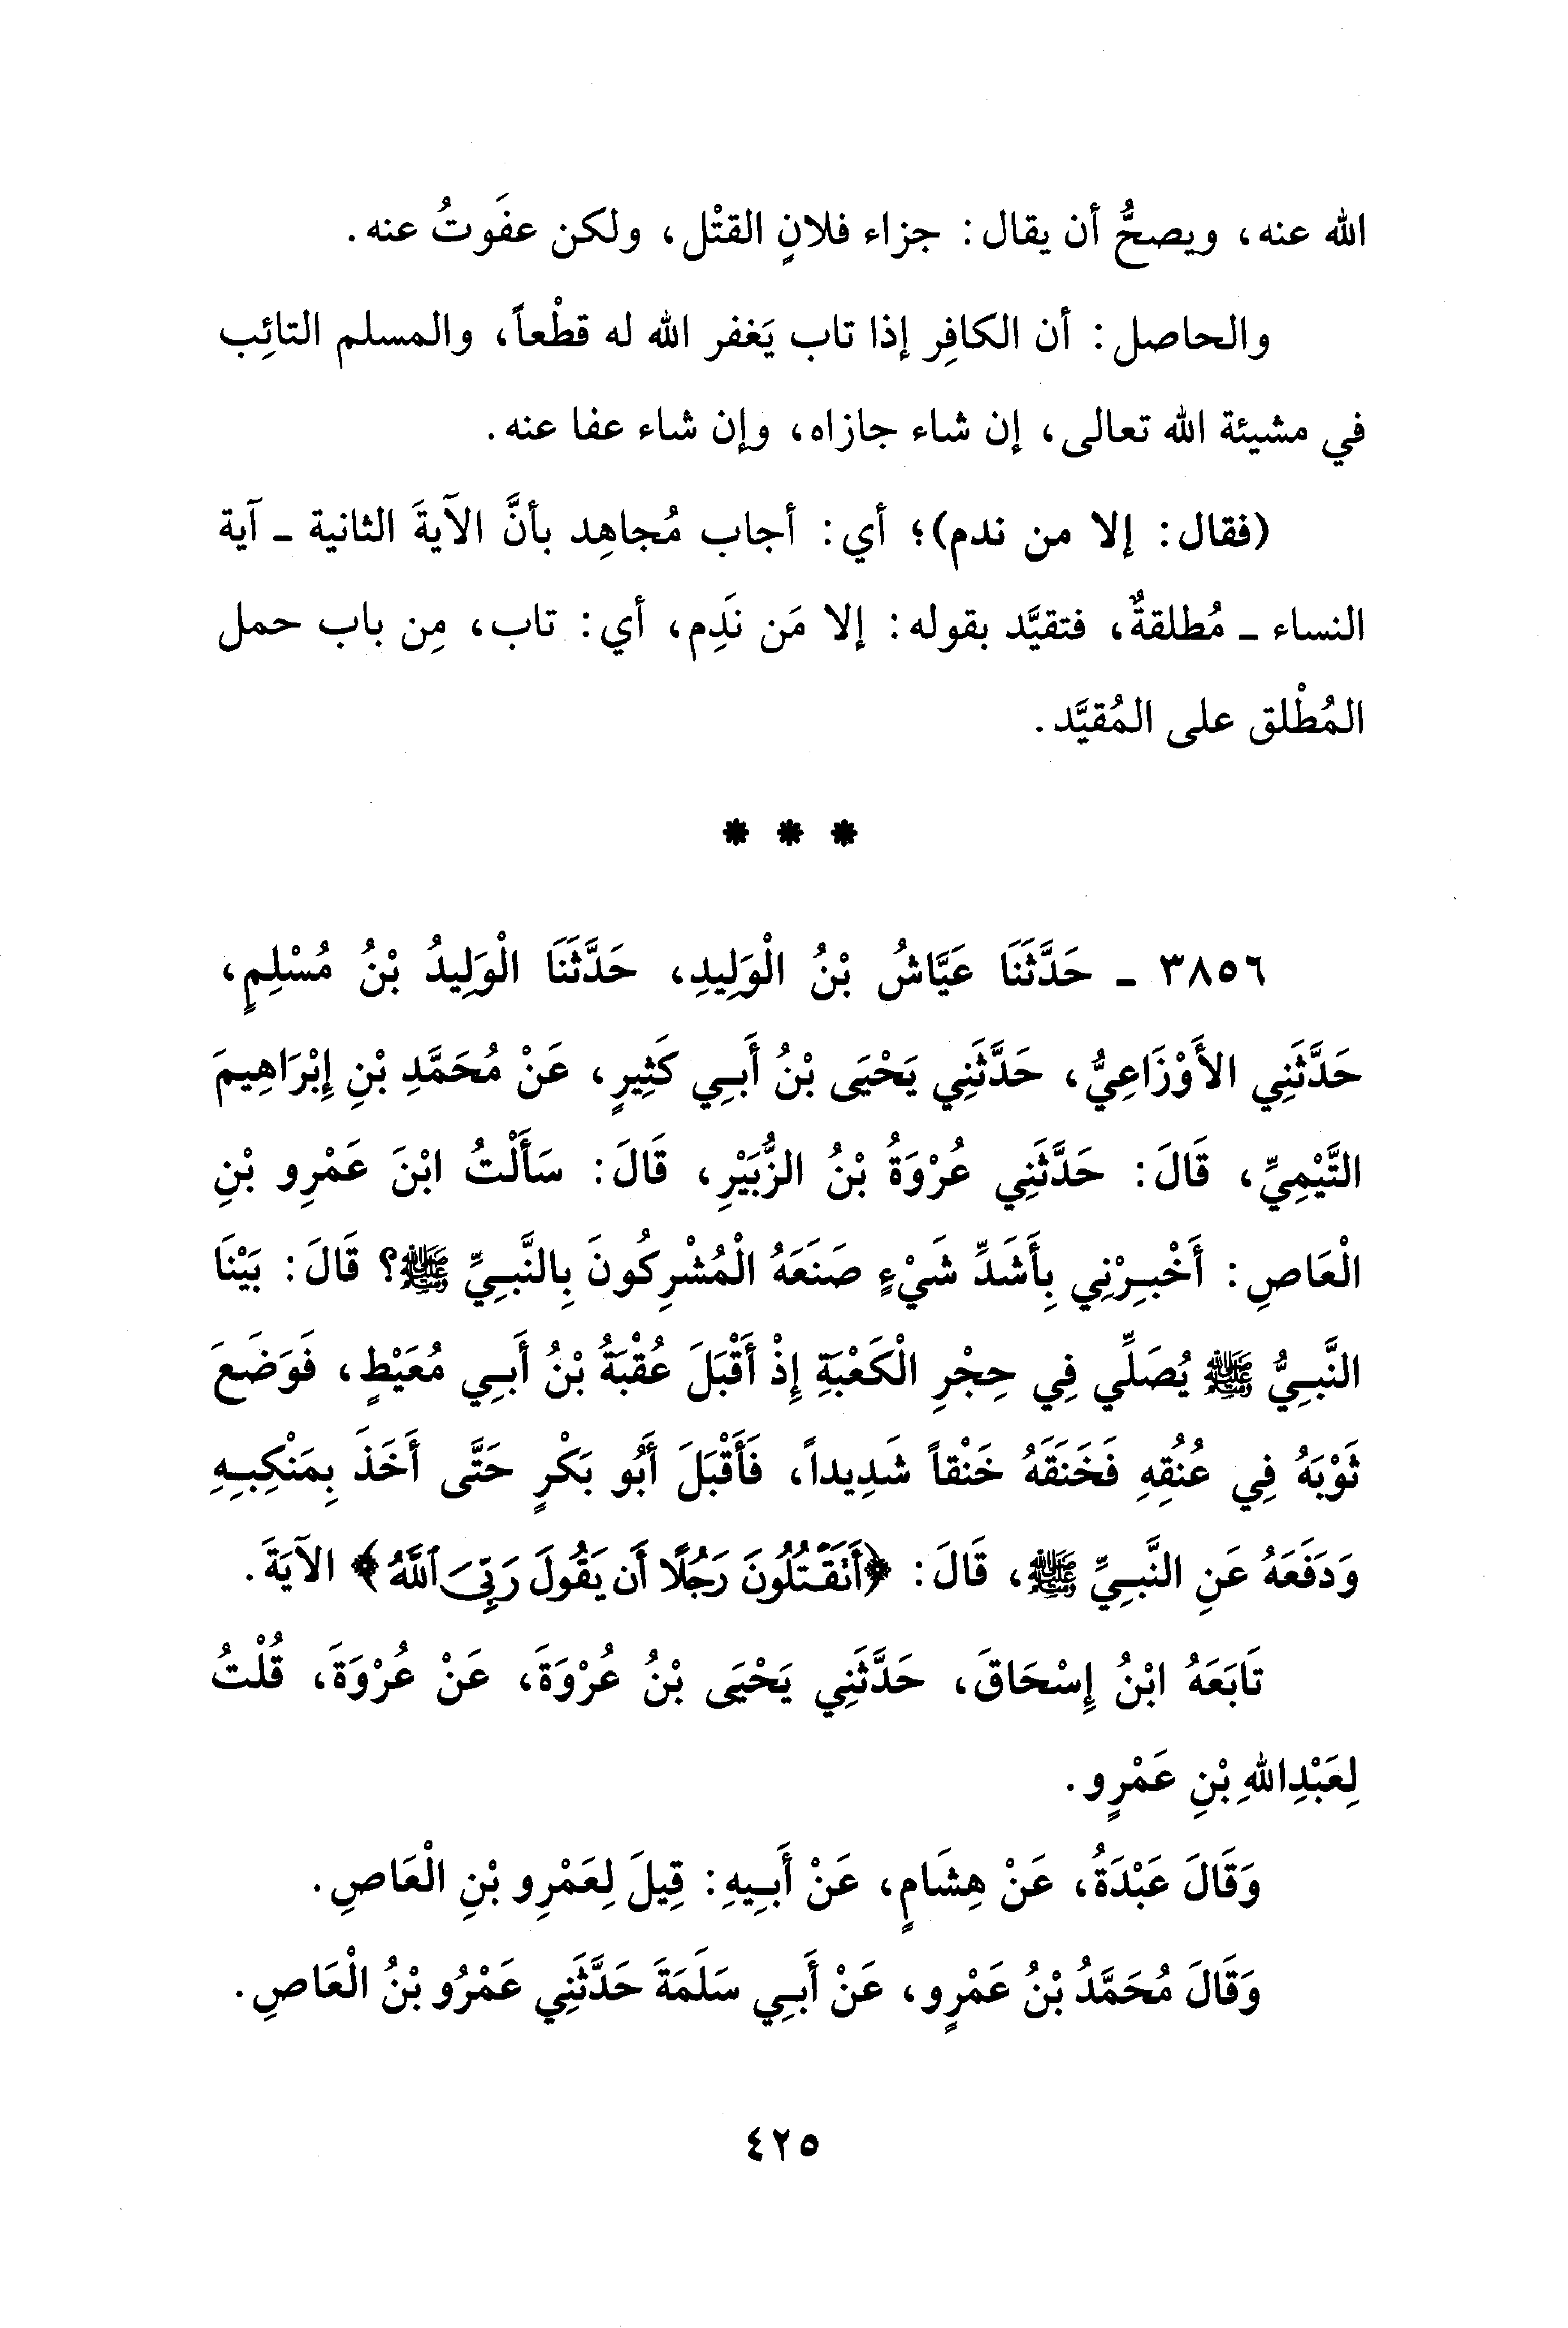 الله عنه، ويصحُّ أن يقال: جزاء فلانٍ القتْل، ولكن عفَوتُ عنه.
والحاصل: أن الكافِر إذا تاب يَغفر الله له قطْعاً، والمسلم التائِب
في مشيئة الله تعالى، إن شاء جازاه، وإن شاء عفا عنه.
(فقال: إلا من ندم)؛ أي: أجاب مُجاهِد بأنَّ الآيةَ الثانية ـ آية
النساء ـ مُطلقةٌ، فتقيَّد بقوله: إلا مَن نَدِم، أي: تاب، مِن باب حمل
المُطْلق على المُقيَّد.
* * *
٣٨٥٦ ـ حَدَّثَنَا عَيَّاشُ بْنُ الْوَلِيدِ، حَدَّثَنَا الْوَلِيدُ بْنُ مُسْلِمٍ،
حَدَّثَنِي الأَوْزَاعِيُّ، حَدَّثَنِي يَحْيَى بْنُ أَبِي كَثِيرٍ، عَنْ مُحَمَّدِ بْنِ إِبْرَاهِيمَ
التَّيْمِيِّ، قَالَ: حَدَّثَنِي عُرْوَةُ بْنُ الزُّبَيْرِ، قَالَ: سَأَلْتُ ابْنَ عَمْرِو بْنِ
الْعَاصِ: أَخْبِرْنِي بِأَشَدِّ شَيْءٍ صَنَعَهُ الْمُشْرِكُونَ بِالنَّبِيِّ ﷺ؟ قَالَ: بَيْنَا
النَّبِيُّ ﷺ يُصَلِّي فِي حِجْرِ الْكَعْبَةِ إِذْ أَقْبَلَ عُقْبَةُ بْنُ أَبِي مُعَيْطٍ، فَوَضَعَ
ثَوْبَهُ فِي عُنُقِهِ فَخَنَقَهُ خَنْقاً شَدِيداً، فَأَقْبَلَ أَبُو بَكْرٍ حَتَّى أَخَذَ بِمَنْكِبِهِ
وَدَفَعَهُ عَنِ النَّبِيِّ ﷺ، قَالَ: ﴿أَتَقْتُلُونَ رَجُلًا أَن يَقُولَ رَبِّيَ ٱللَّهُ﴾ الآيَةَ.
تَابَعَهُ ابْنُ إِسْحَاقَ، حَدَّثَنِي يَحْيَى بْنُ عُرْوَةَ، عَنْ عُرْوَةَ، قُلْتُ
لِعَبْدِاللهِ بْنِ عَمْرٍو.
وَقَالَ عَبْدَةُ، عَنْ هِشَامٍ، عَنْ أَبِيهِ: قِيلَ لِعَمْرِو بْنِ الْعَاصِ.
وَقَالَ مُحَمَّدُ بْنُ عَمْرٍو، عَنْ أَبِي سَلَمَةَ حَدَّثَنِي عَمْرُو بْنُ الْعَاصِ.
٤٢٥